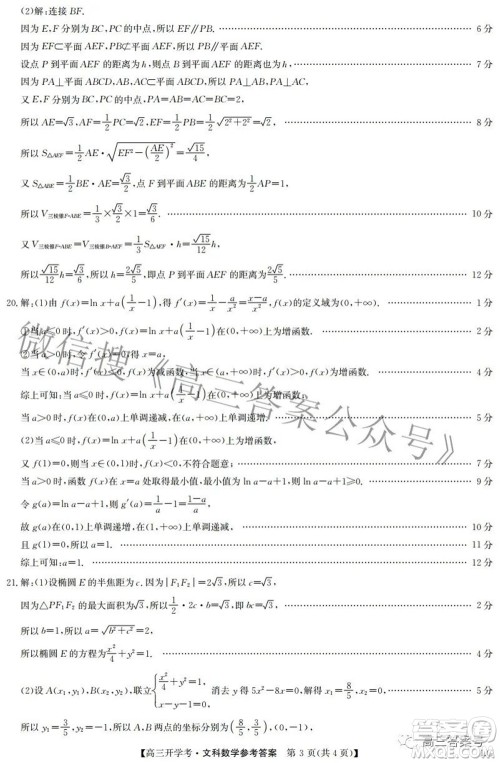 (2)解:连接 BF.
因为 E,F 分别为 BC,PC 的中点,所以 EF∥PB. 6 分
因为 EF⊂平面 AEF,PB⊄平面 AEF,所以 PB∥平面 AEF,
设点 P 到平面 AEF 的距离为 h,则点 B 到平面 AEF 的距离也为 h. 7 分
因为 PA⊥平面 ABCD,AB,AC⊂平面 ABCD,所以 PA⊥AB,PA⊥AC.
又 E,F 分别为 BC,PC 的中点,PA=AB=AC=BC=2,
所以 AE=√3,AF=1/2PC=√2,EF=1/2PB=1/2√(2²+2²)=√2,
所以 S△AEF=1/2AE·√(EF²-(AE/2)²)=√15/4,
又 S△ABE=1/2BE·AE=√3/2,点 F 到平面 ABE 的距离为1/2AP=1,
所以 V三棱锥F-ABE=1/3×√3/2×1=√3/6. 10 分
又 V三棱锥F-ABE=V三棱锥B-AEF=1/3S△AEF·h=√15/12h,
所以√15/12h=√3/6,所以 h=2√5/5,即点 P 到平面 AEF 的距离为2√5/5. 12 分
20.解:(1)由 f(x)=ln x+a(1/x-1),得 f′(x)=1/x-a/x²=(x-a)/x²,f(x)的定义域为(0,+∞). 1 分
①当 a≤0 时,f′(x)>0,所以 f(x)=ln x+a(1/x-1)在(0,+∞)上为增函数. 2 分
②当 a>0 时,令 f′(x)=0,得 x=a. 3 分
当 x∈(0,a)时,f′(x)<0,f(x)为减函数,当 x∈(a,+∞)时,f′(x)>0,f(x)为增函数. 4 分
综上可知:当 a≤0 时,f(x)=ln x+a(1/x-1)在(0,+∞)上为增函数;
当 a>0 时,f(x)在(0,a)上单调递减,在(a,+∞)上单调递增. 5 分
(2)当 a≤0 时,因为 f(x)=ln x+a(1/x-1)在(0,+∞)上为增函数,
又 f(1)=0,所以当 x∈(0,1)时,f(x)<0,不符合题意; 7 分
当 a>0 时,函数 f(x)在 x=a 处取得最小值,最小值为 ln a-a+1,所以 ln a-a+1≥0. 9 分
令 g(a)=ln a-a+1,则 g′(a)=1/a-1=(1-a)/a.
故 g(a)在(0,1)上单调递增,在(1,+∞)上单调递减. 10 分
且 g(1)=0,所以 a=1. 11 分
综上可知:a=1. 12 分
21.解:(1)设椭圆 E 的半焦距为 c.因为|F₁F₂|=2√3,所以 c=√3. 1 分
因为△PF₁F₂ 的最大面积为√3,所以1/2·2c·b=√3,即 cb=√3. 2 分
所以 b=1,所以 a=√(b²+c²)=2,
所以椭圆 E 的方程为x²/4+y²=1. 4 分
(2)设 A(x₁,y₁),B(x₂,y₂),联立{x²/4+y²=1, 消去 y 得 5x²-8x=0.解得 x₁=8/5,x₂=0.
所以 y₁=3/5,y₂=-1,所以两点的坐标分别为(8/5,3/5),(0,-1). 5 分
【高三开学考·文科数学参考答案 第 3 页(共 4 页)】
微信搜《高三答案公众号》
高三答案号